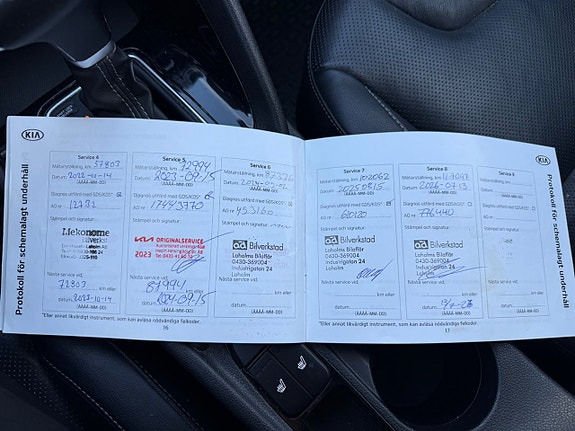 KIA
Protokoll för schemalagt underhåll
Service 4
Mätarställning, km 57803
Datum 2022-10-14
(ÅÅÅÅ-MM-DD)
Diagnos utförd med SDS/KDS*
AO nr 12781
Stämpel och signatur:
Nästa service vid:
72803 km eller
datum 2023-10-14
(ÅÅÅÅ-MM-DD)
Service 5
Mätarställning, km 72994
Datum 2023-09-15
(ÅÅÅÅ-MM-DD)
Diagnos utförd med SDS/KDS*
AO nr 17443770
Stämpel och signatur:
KIA ORIGINALSERVICE
2023
Nästa service vid:
87994 km eller
datum 2024-09-15
(ÅÅÅÅ-MM-DD)
Service 6
Mätarställning, km
Datum
(ÅÅÅÅ-MM-DD)
Diagnos utförd med SDS/KDS*
AO nr
Stämpel och signatur:
AD Bilverkstad
Laholms Bilaffär
0430-369004
Industrigatan 24
Laholm
Nästa service vid:
km eller
datum
(ÅÅÅÅ-MM-DD)
*Eller annat likvärdigt instrument, som kan avläsa nödvändiga felkoder.
16
Service 7
Mätarställning, km 102062
Datum 20250815
(ÅÅÅÅ-MM-DD)
Diagnos utförd med SDS/KDS*
AO nr 610120
Stämpel och signatur:
AD Bilverkstad
Laholms Bilaffär
0430-369004
Industrigatan 24
Laholm
Nästa service vid:
km eller
datum
(ÅÅÅÅ-MM-DD)
Service 8
Mätarställning, km
Datum 2026-07-13
(ÅÅÅÅ-MM-DD)
Diagnos utförd med SDS/KDS*
AO nr 776440
Stämpel och signatur:
AD Bilverkstad
Laholms Bilaffär
0430-369004
Industrigatan 24
Laholm
Nästa service vid:
km eller
datum
(ÅÅÅÅ-MM-DD)
Service 9
Mätarställning, km
Datum
(ÅÅÅÅ-MM-DD)
Diagnos utförd med SDS/KDS*
AO nr
Stämpel och signatur:
Nästa service vid:
km eller
datum
(ÅÅÅÅ-MM-DD)
*Eller annat likvärdigt instrument, som kan avläsa nödvändiga felkoder.
17
KIA
Protokoll för schemalagt underhåll